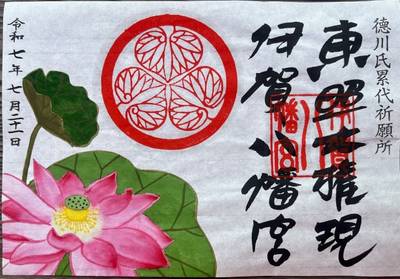 徳川氏累代祈願所
東照大権現
伊賀八幡宮
令和七年七月二十一日